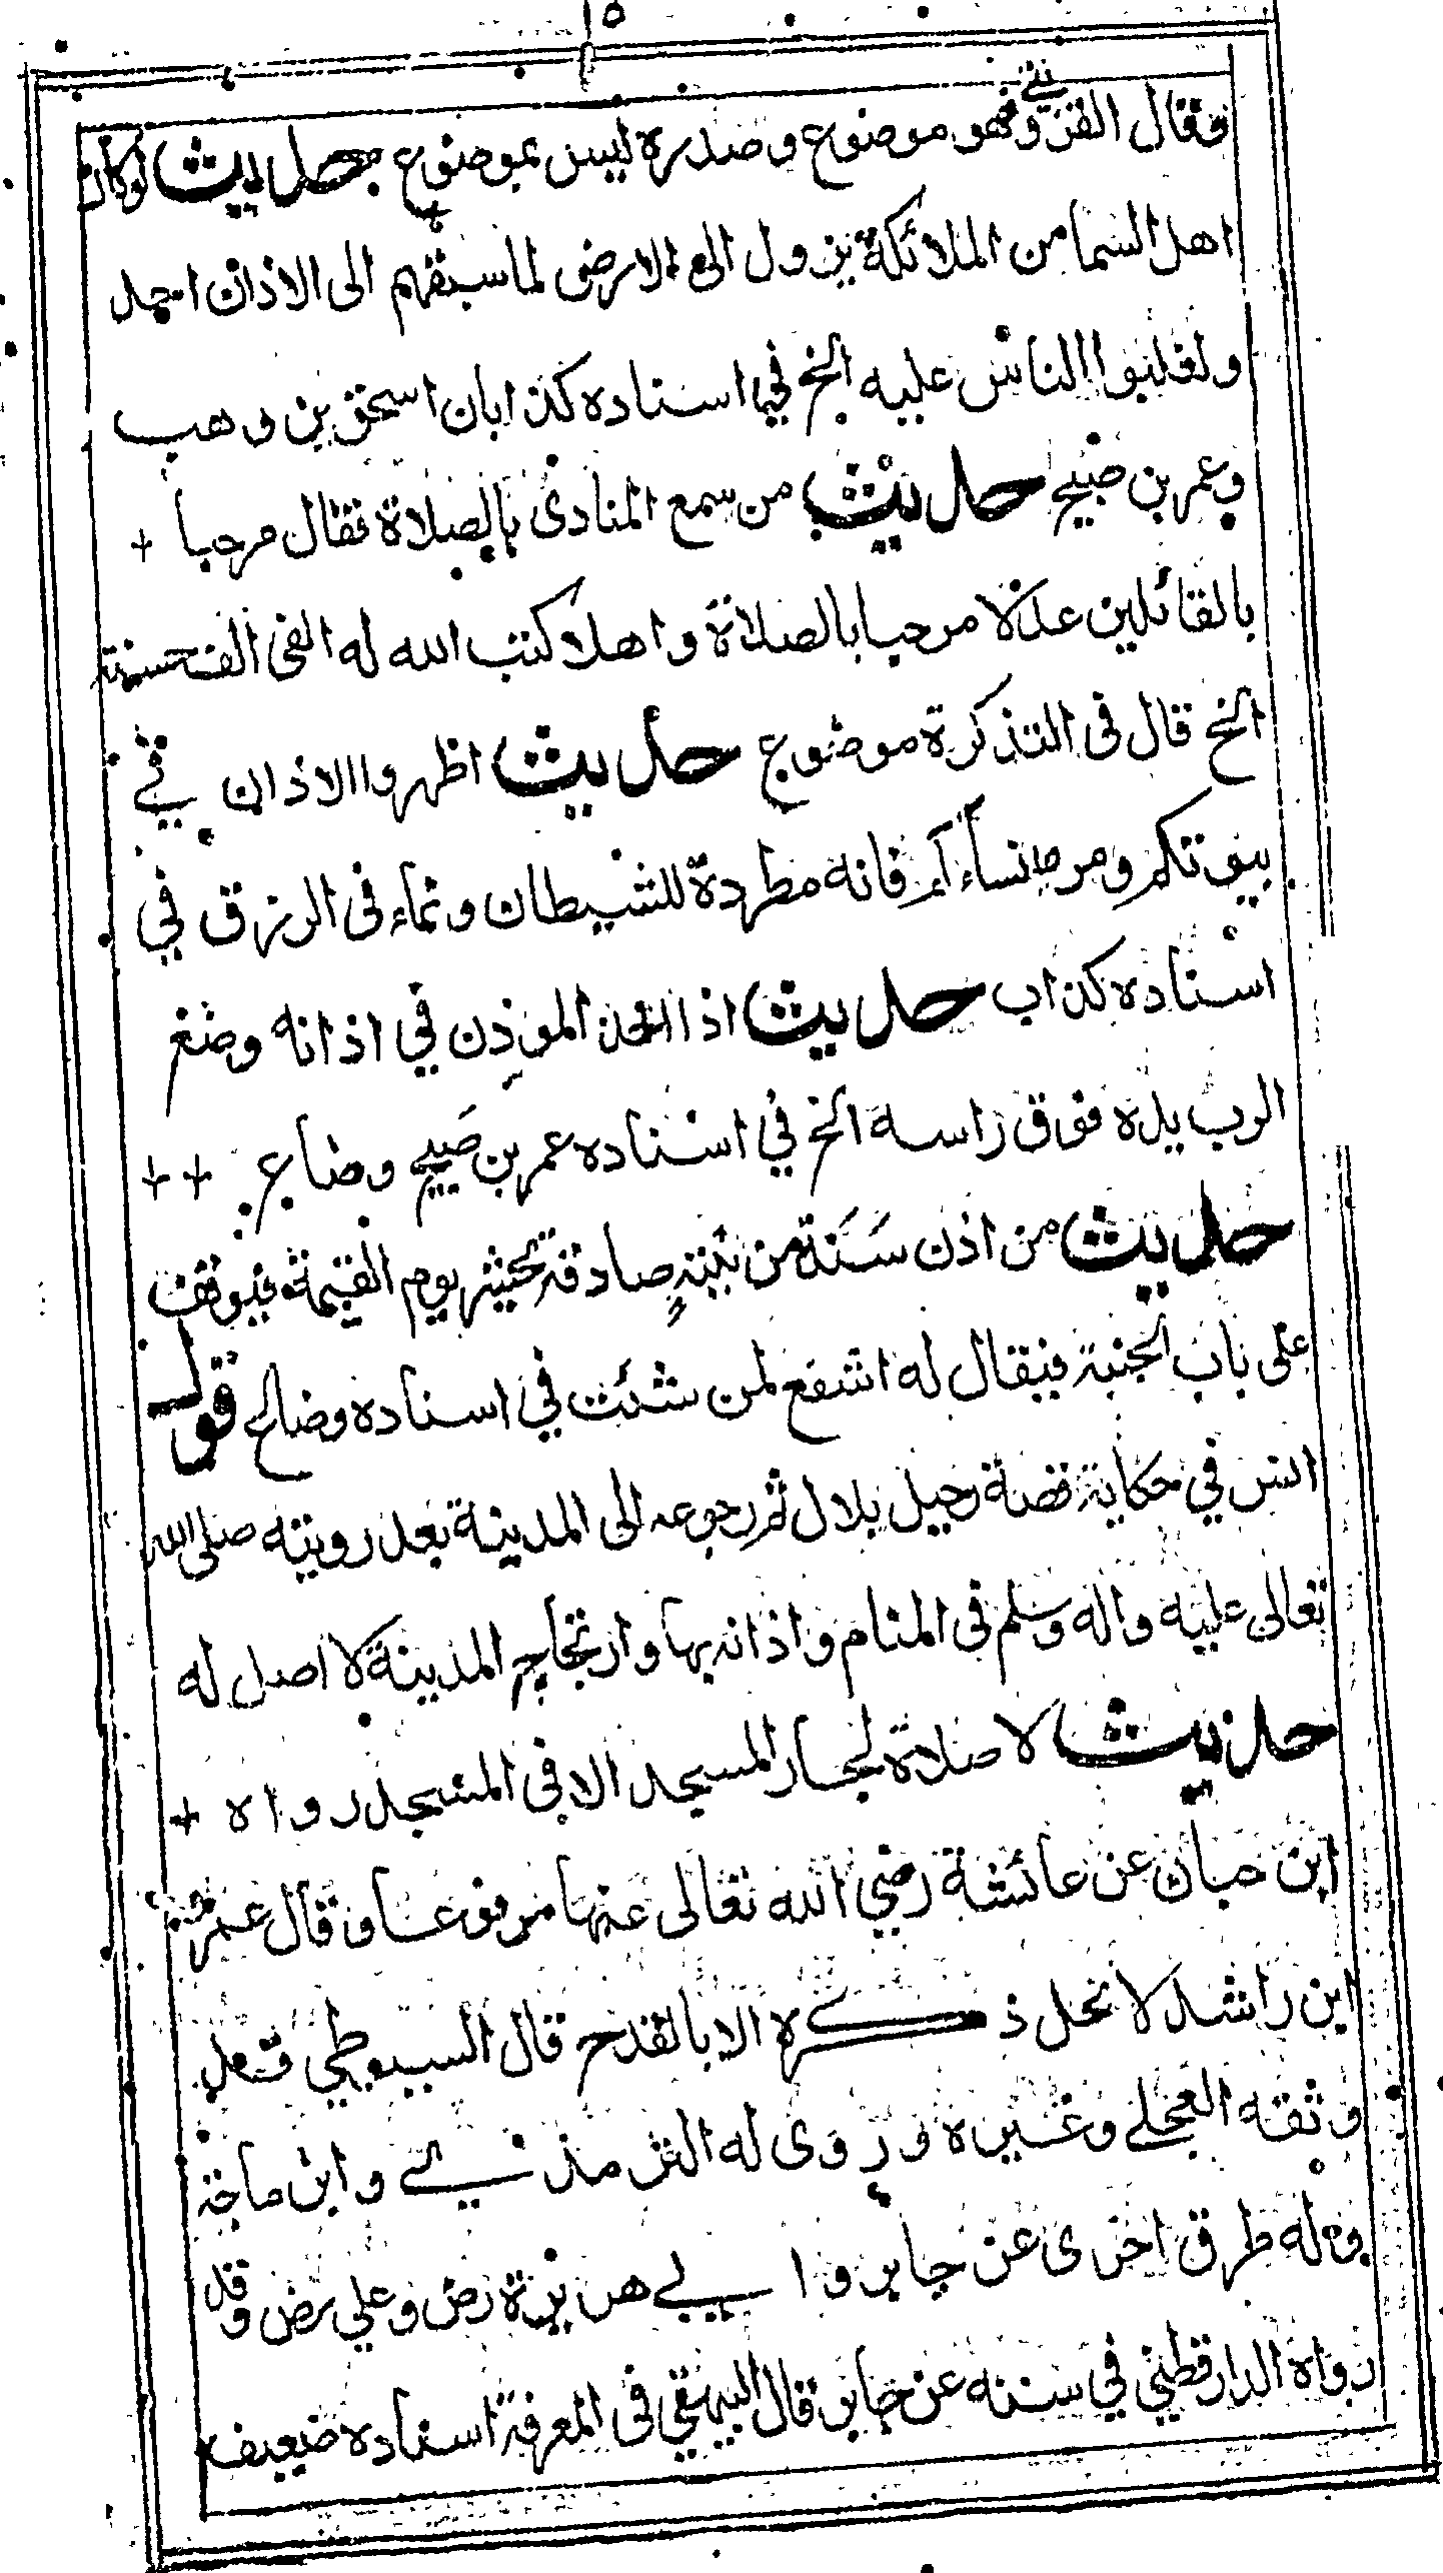 ١٥
وقال القزويني فهو موضوع وصدره ليس بموضوع حديث لوكان
اهل السما من الملائكة نزول الى الارض لما سبقهم الى الاذان احد
ولغلبوا الناس عليه الخ في اسناده كذابان اسحق بن وهب
وعمر بن صبيح حديث من سمع المنادى بالصلاة فقال مرحبا +
بالقائلين عدلا مرحبا بالصلاة واهلا كتب الله له الفى الف حسنة
الخ قال فى التذكرة موضوع حديث اظهروا الاذان في
بيوتكم ومروا نساءكم فانه مطردة للشيطان ونماء فى الرزق في
اسناده كذاب حديث اذا اخذ الموذن في اذانه وضع
الرب يده فوق راسه الخ في اسناده عمر بن صبيح وضاع + +
حديث من اذن سنة من نية صادقة يحشر يوم القيمة فيوقف
على باب الجنة فيقال له اشفع لمن شئت في اسناده وضاع قول
انس في حكاية قصة رحيل بلال ثم رجوعه الى المدينة بعد رويته صلى الله
تعالى عليه واله وسلم فى المنام واذانه بها وارتجاج المدينة لا اصل له
حديث لا صلاة لجار المسجد الا فى المسجد رواه +
ابن حبان عن عائشة رضي الله تعالى عنها مرفوعا وقال عمر
ابن راشد لا نحل ذكره الا بالقدح قال السيوطي قد
وثقه العجلے وغيره وروى له الترمذي وابن ماجة
وله طرق اخرى عن جابر وابي هريرة رض وعلي رض وقد
رواه الدارقطني في سننه عن جابر قال البيهقي فى المعرفة اسناده ضعيف